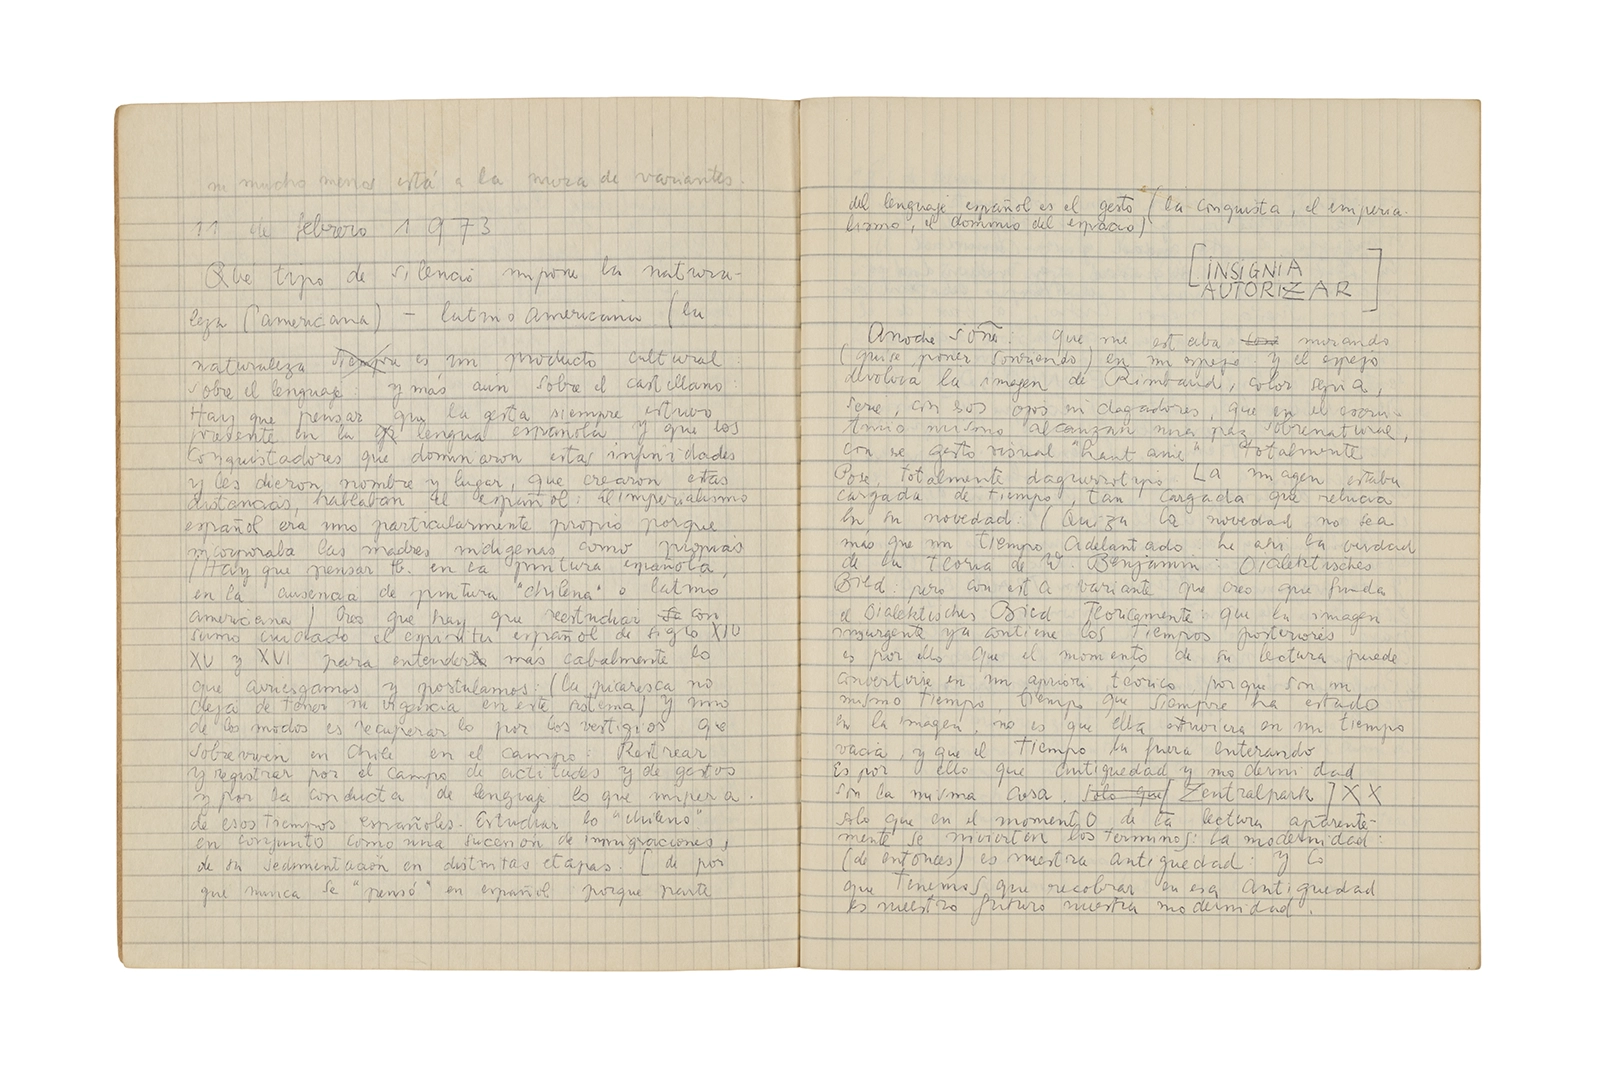 ni mucho menos está a la mera de variantes.
11 de febrero 1973
Qué tipo de silencio impone la natura-
leza (americana) – latinoamericana (la
naturaleza siempre es un producto cultural:
sobre el lenguaje: y más aún sobre el castellano:
Hay que pensar que la gesta siempre estuvo
presente en la lengua española y que los
Conquistadores que dominaron estas infinidades
y les dieron nombre y lugar, que crearon estas
distancias, hablaban el español: el imperialismo
español era uno particularmente propio porque
incorporaba las madres indígenas como propias
(Hay que pensar tb. en la pintura española,
en la ausencia de pintura "chilena" o latino
americana) Creo que hay que reestudiar la con
sumo cuidado el espíritu español de siglo XIV
XV y XVI para entender más cabalmente lo
que arriesgamos y postulamos: (la picaresca no
deja de tener su vigencia en este sistema) y uno
de los modos es recuperarlo por los vestigios que
sobreviven en Chile en el campo: Rastrear
y registrar por el campo de actitudes y de gestos
y por la conducta de lenguaje lo que impera
de esos tiempos españoles. Estudiar lo "chileno"
en conjunto como una sucesión de inmigraciones,
de su sedimentación en distintas etapas: [ de por
que nunca se "pensó" en español porque parte
del lenguaje español es el gesto (la conquista, el imperia-
lismo, el dominio del espacio)
[INSIGNIA
AUTORIZAR]
Anoche soñé: que me estaba mirando
(quise poner sonriendo) en mi espejo y el espejo
devolvía la imagen de Rimbaud, color sepia,
serie, con sus ojos indagadores, que en el escru-
tinio mismo alcanzan una paz sobrenatural,
con ese gesto visual "haut ame" totalmente
Pose, totalmente daguerrotipo. La imagen estaba
cargada de tiempo, tan cargada que relucía
en su novedad: (Quizá la novedad no sea
más que un tiempo adelantado: he ahí la verdad
de la teoría de W. Benjamin: Dialektisches
Bild: pero con esta variante que creo que funda
el Dialektisches Bild Teóricamente: que la imagen
insurgente ya contiene los tiempos posteriores
es por ello que el momento de su lectura puede
convertirse en un apriori teórico, porque son un
mismo tiempo, tiempo que siempre ha estado
en la imagen, no es que ella estuviera en un tiempo
vacía, y que el tiempo la fuera enterando
Es por ello que antiguedad y modernidad
son la misma cosa. solo que [Zentralpark] XX
solo que en el momento de la lectura aparente-
mente se invierten los términos: la modernidad:
(de entonces) es nuestra antiguedad: y lo
que tenemos que recobrar en esa antiguedad
es nuestro futuro nuestra modernidad.